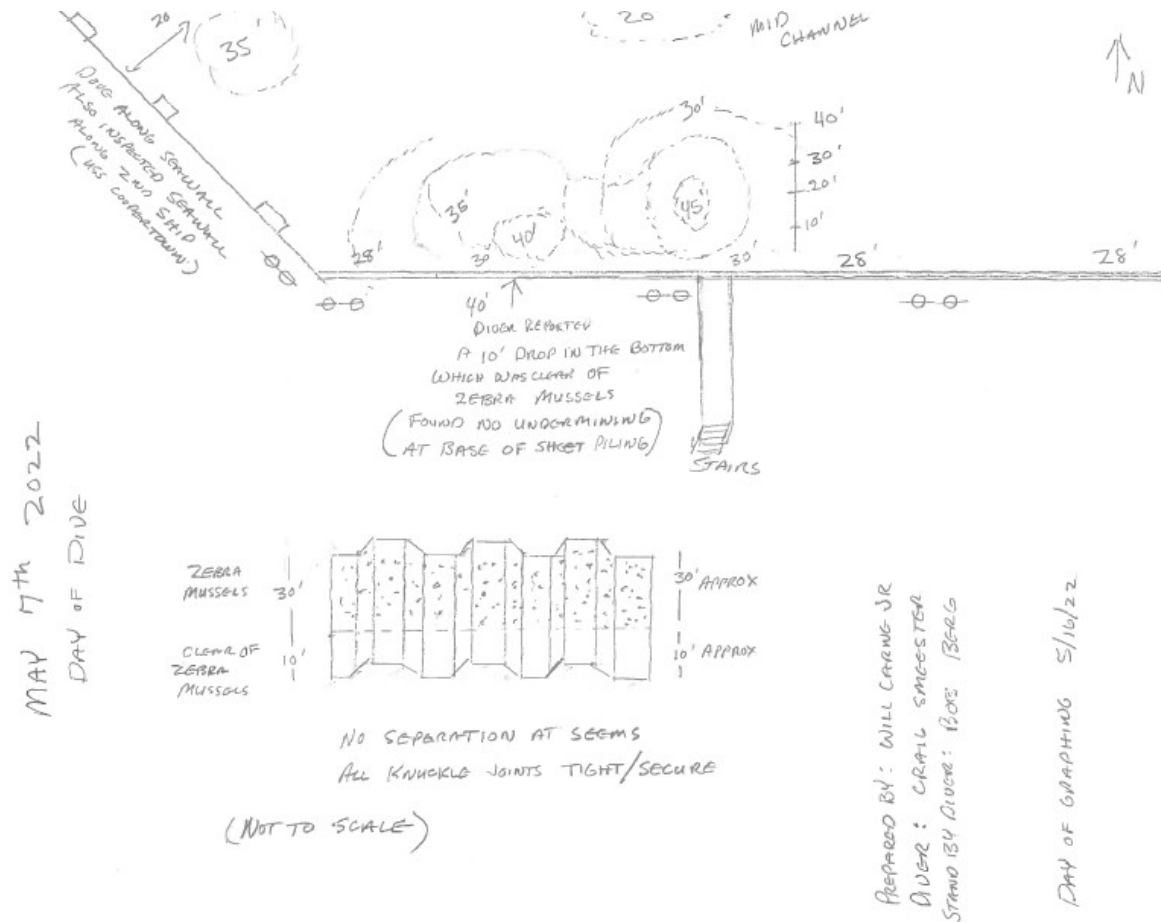 20
35'
20
MID
CHANNEL
N
DOVE ALONG SEAWALL
ALSO INSPECTED SEAWALL
ALONG 2ND SHIP
30'
40'
30'
20'
10'
35'
40'
45'
28'
30'
30'
28'
28'
40'
DIVER REPORTED
A 10' DROP IN THE BOTTOM
WHICH WAS CLEAR OF
ZEBRA MUSSELS
(FOUND NO UNDERMINING
AT BASE OF SHEET PILING)
STAIRS
MAY 7th 2022
DAY OF DIVE
ZEBRA
MUSSELS
30'
30' APPROX
CLEAR OF
ZEBRA
MUSSELS
10'
10' APPROX
NO SEPARATION AT SEEMS
ALL KNUCKLE JOINTS TIGHT/SECURE
(NOT TO SCALE)
PREPARED BY: WILL CARING JR
DIVER: CRAIL SMEESTER
STAND BY DIVER: BERG
DAY OF GRAPHING 5/16/22